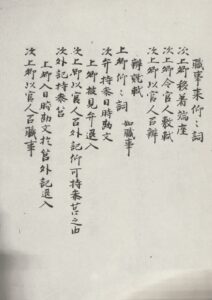 職事来仰々詞
次上卿移着端座
次上卿令官人敷軾
次上卿以官人召辨
辨就軾
上卿仰々詞 如職事
次弁持参日時勘文
上卿披見弁退入
次上卿以官人召外記仰可持参筥之由
次外記持参筥
上卿入日時勘文於筥外記退入
次上卿以官人召職事